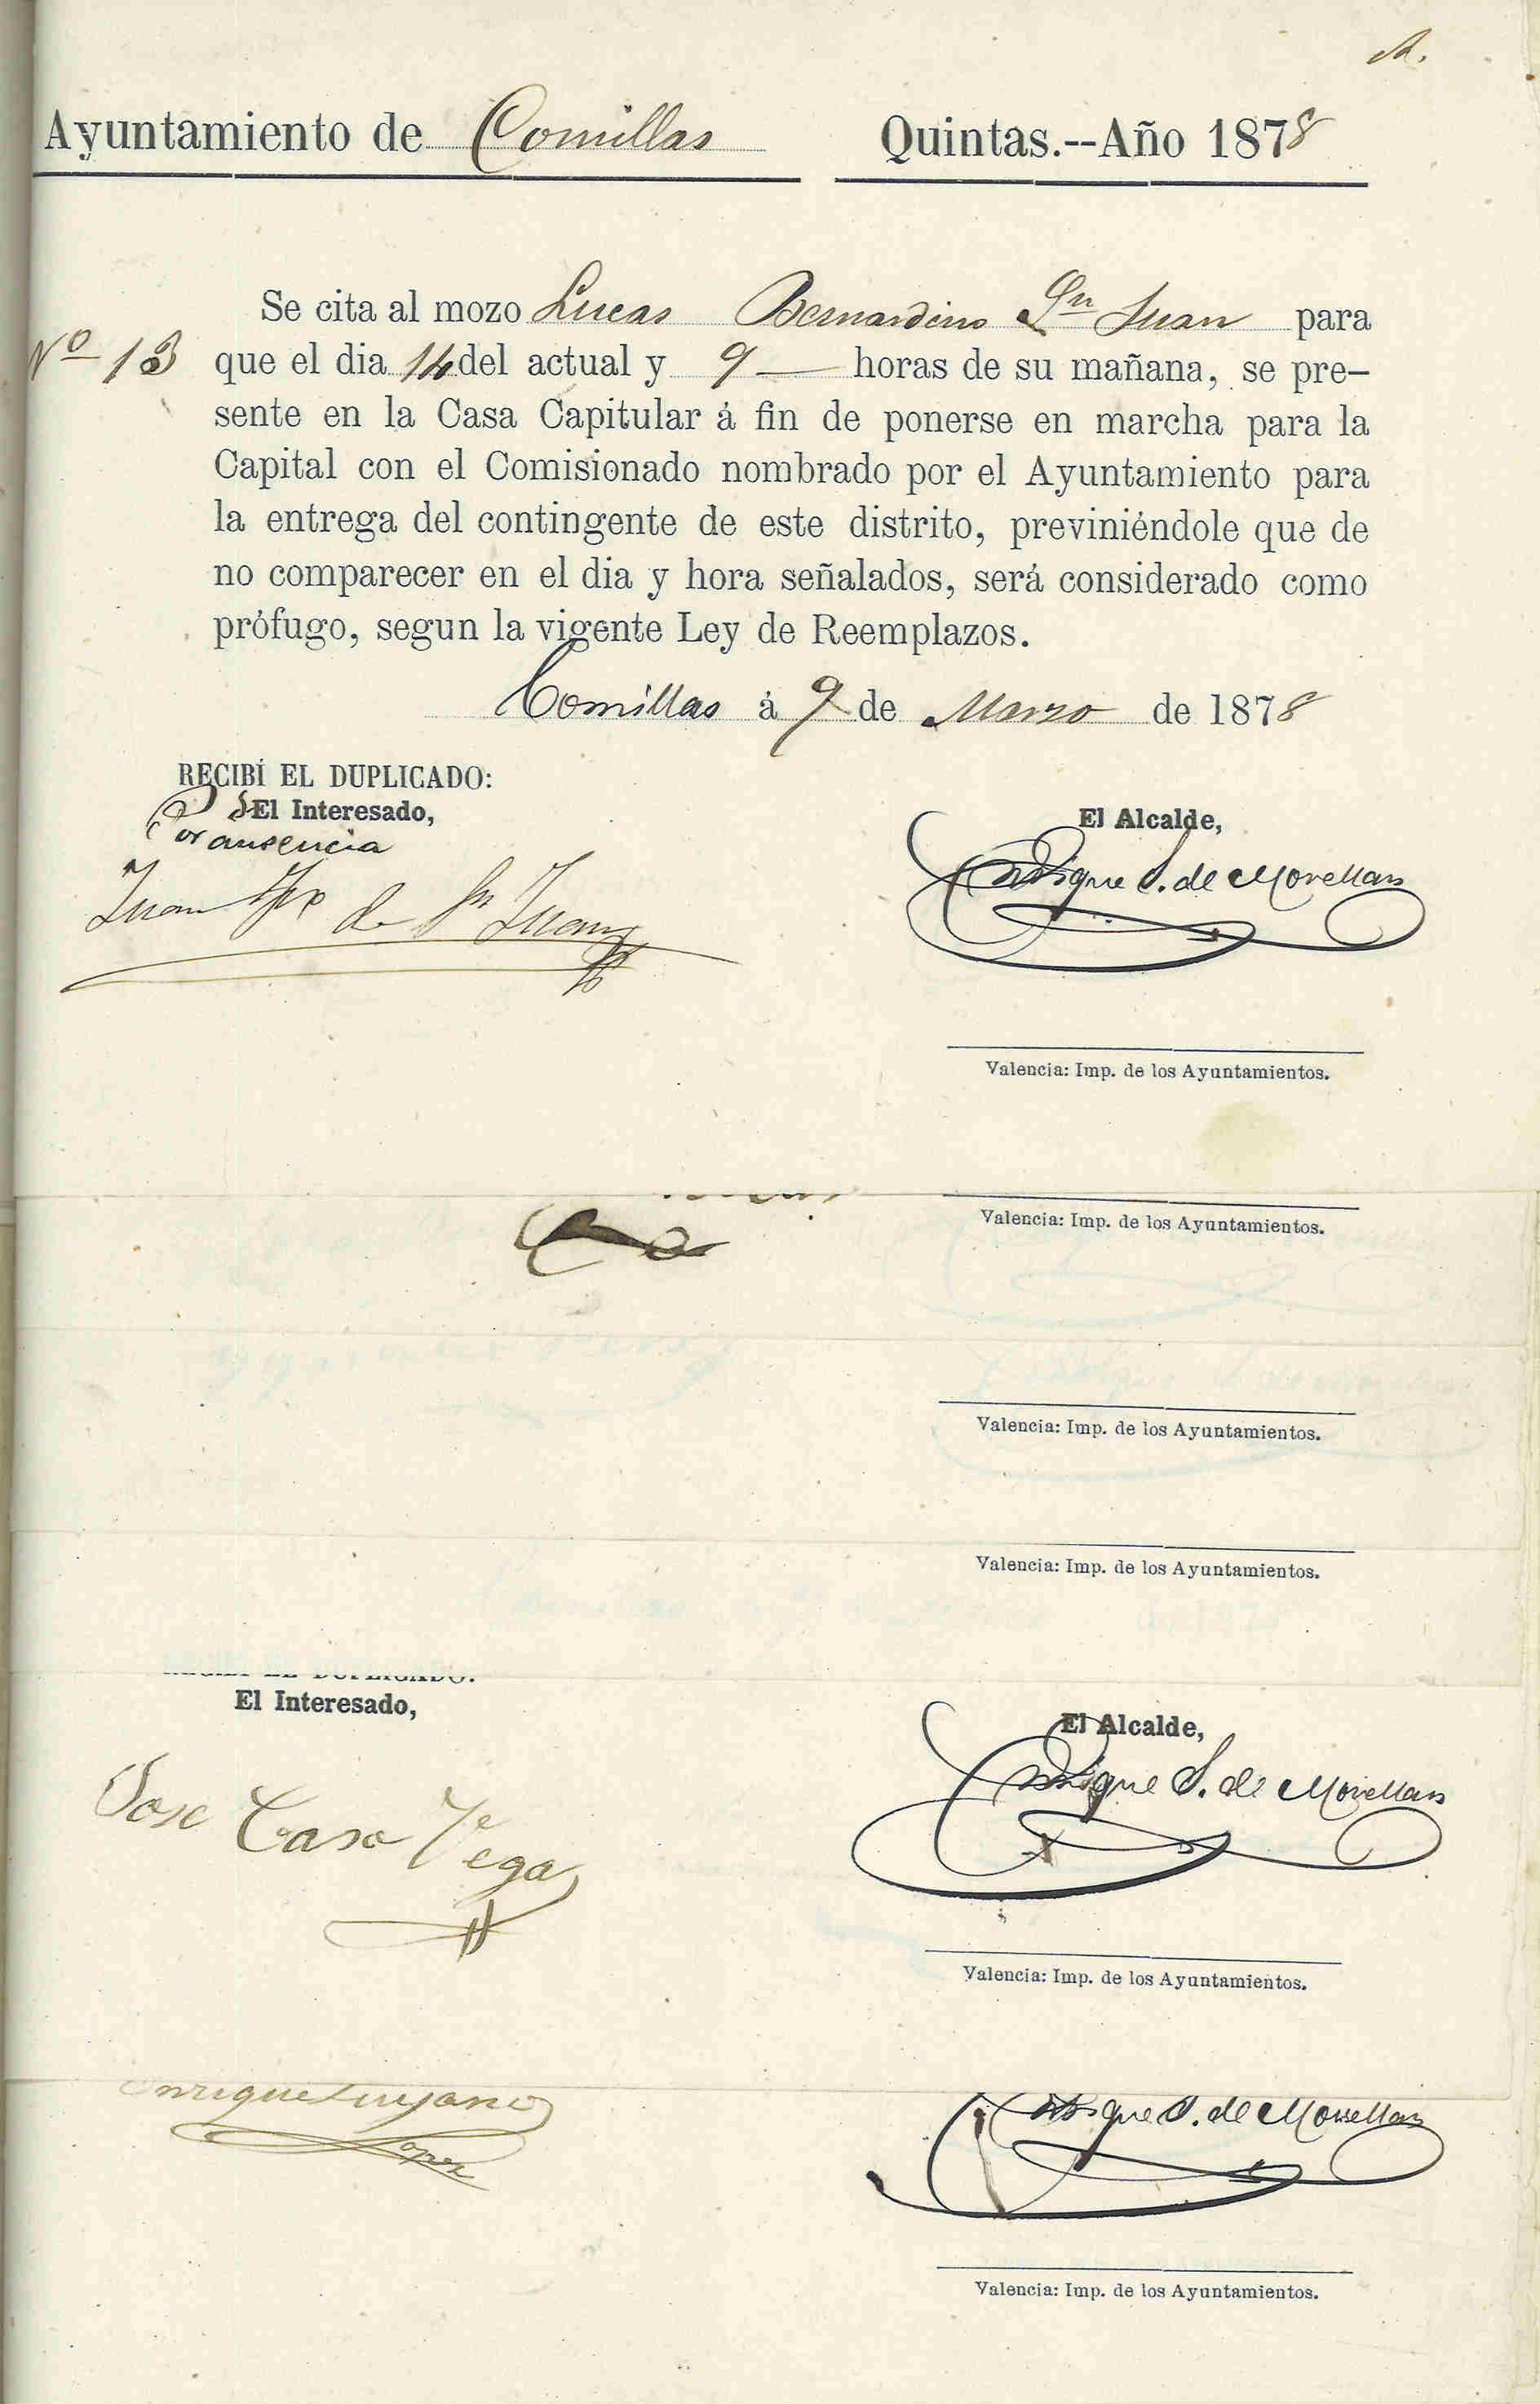 A.
Ayuntamiento de Comillas Quintas.--Año 1878
Se cita al mozo Lucas Bernardino Sn Juan para
Nº 13 que el dia 14 del actual y 9 horas de su mañana, se pre-
sente en la Casa Capitular á fin de ponerse en marcha para la
Capital con el Comisionado nombrado por el Ayuntamiento para
la entrega del contingente de este distrito, previniéndole que de
no comparecer en el dia y hora señalados, será considerado como
prófugo, segun la vigente Ley de Reemplazos.
Comillas á 9 de Marzo de 1878
RECIBÍ EL DUPLICADO:
El Interesado,
El Alcalde,
Por ausencia
Juan de Sn Juan
Enrique S. de Movellan
Valencia: Imp. de los Ayuntamientos.
Valencia: Imp. de los Ayuntamientos.
Valencia: Imp. de los Ayuntamientos.
Valencia: Imp. de los Ayuntamientos.
El Interesado,
El Alcalde,
Jose Caso Vega
Enrique S. de Movellan
Valencia: Imp. de los Ayuntamientos.
Enrique
Lopez
Enrique S. de Movellan
Valencia: Imp. de los Ayuntamientos.